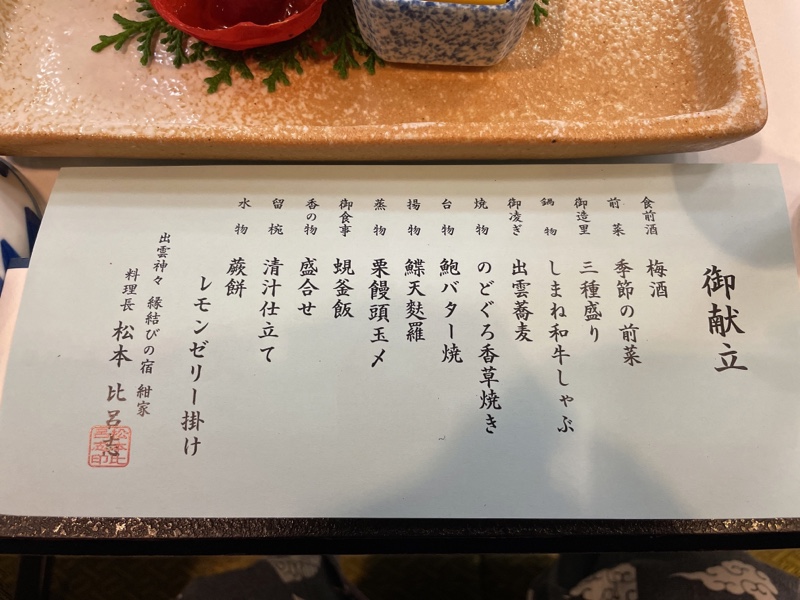 御献立
食前酒 梅酒
前菜 季節の前菜
御造里 三種盛り
鍋物 しまね和牛しゃぶ
御凌ぎ 出雲蕎麦
焼物 のどぐろ香草焼き
台物 鮑バター焼
揚物 鰈天麩羅
蒸物 栗饅頭玉〆
御食事 蜆釜飯
香の物 盛合せ
留椀 清汁仕立て
水物 蕨餅
レモンゼリー掛け
出雲神々 縁結びの宿 紺家
料理長 松本 比呂志